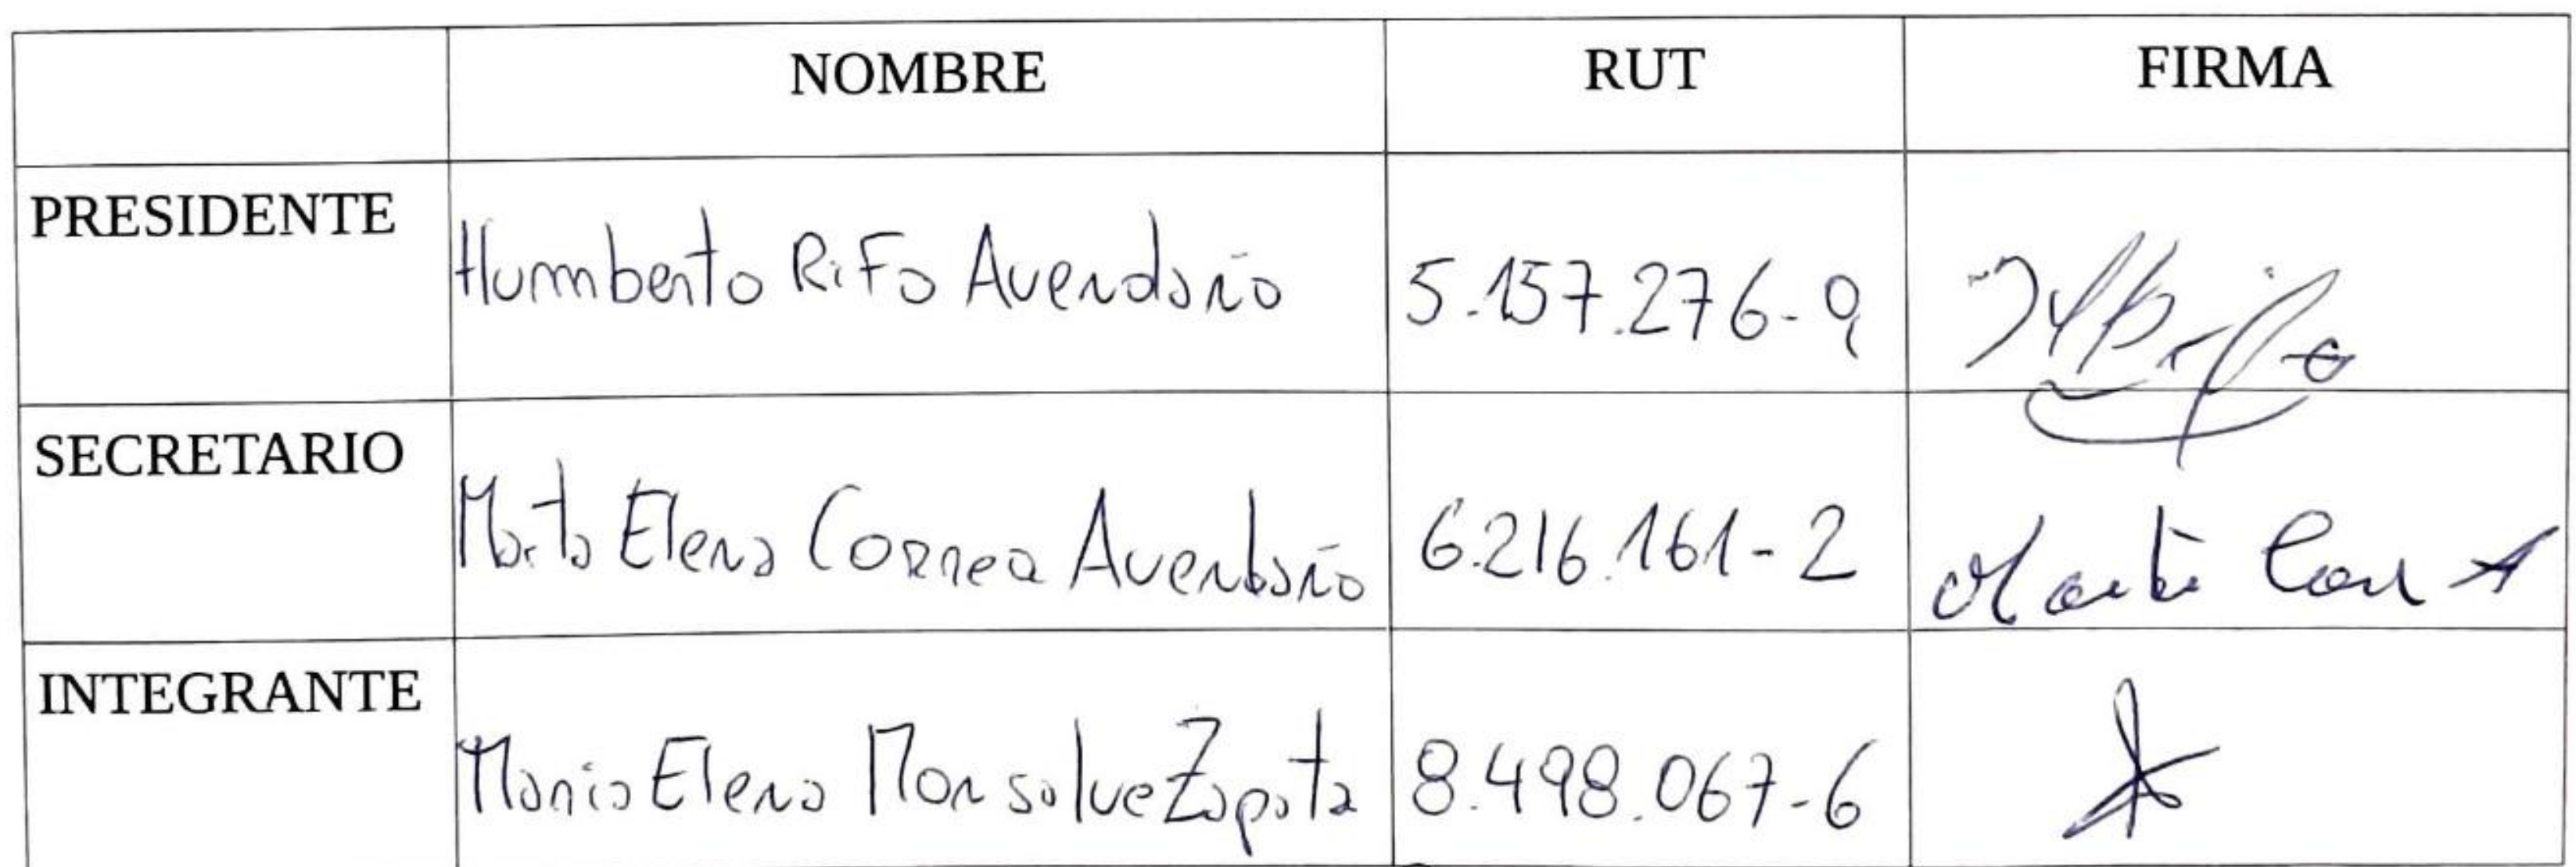 NOMBRE RUT FIRMA
PRESIDENTE Humberto Rifo Avendaño 5.157.276-9
SECRETARIO Marta Elena Correa Avendaño 6.216.161-2
INTEGRANTE Maria Elena Monsalve Zapata 8.498.067-6